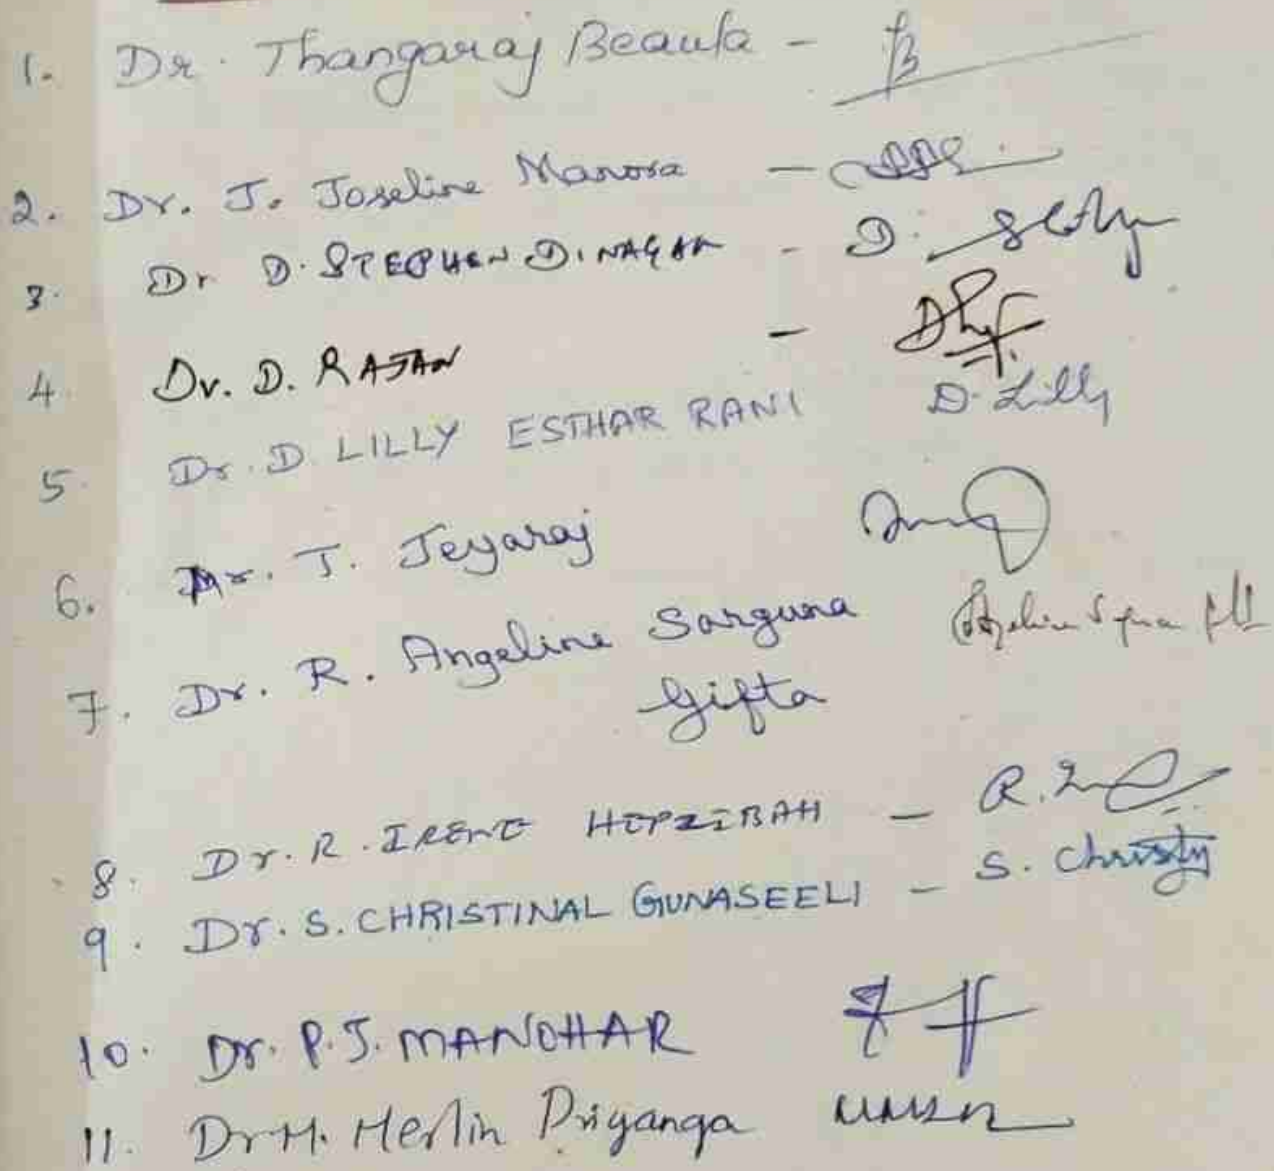 1. Dr. Thangaraj Beaula -
2. Dr. J. Joseline Manora -
3. Dr D. STEPHEN DINAGAR - D.
4. Dr. D. RAJAN -
5. Dr. D. LILLY ESTHAR RANI D. Lilly
6. Mr. T. Jeyaraj
7. Dr. R. Angeline Sarguna
Gifta
8. Dr. R. IRENE HEPZIBAH - R.
9. Dr. S. CHRISTINAL GUNASEELI - S. Christy
10. Dr. P.J. MANOHAR
11. Dr H. Herlin Priyanga